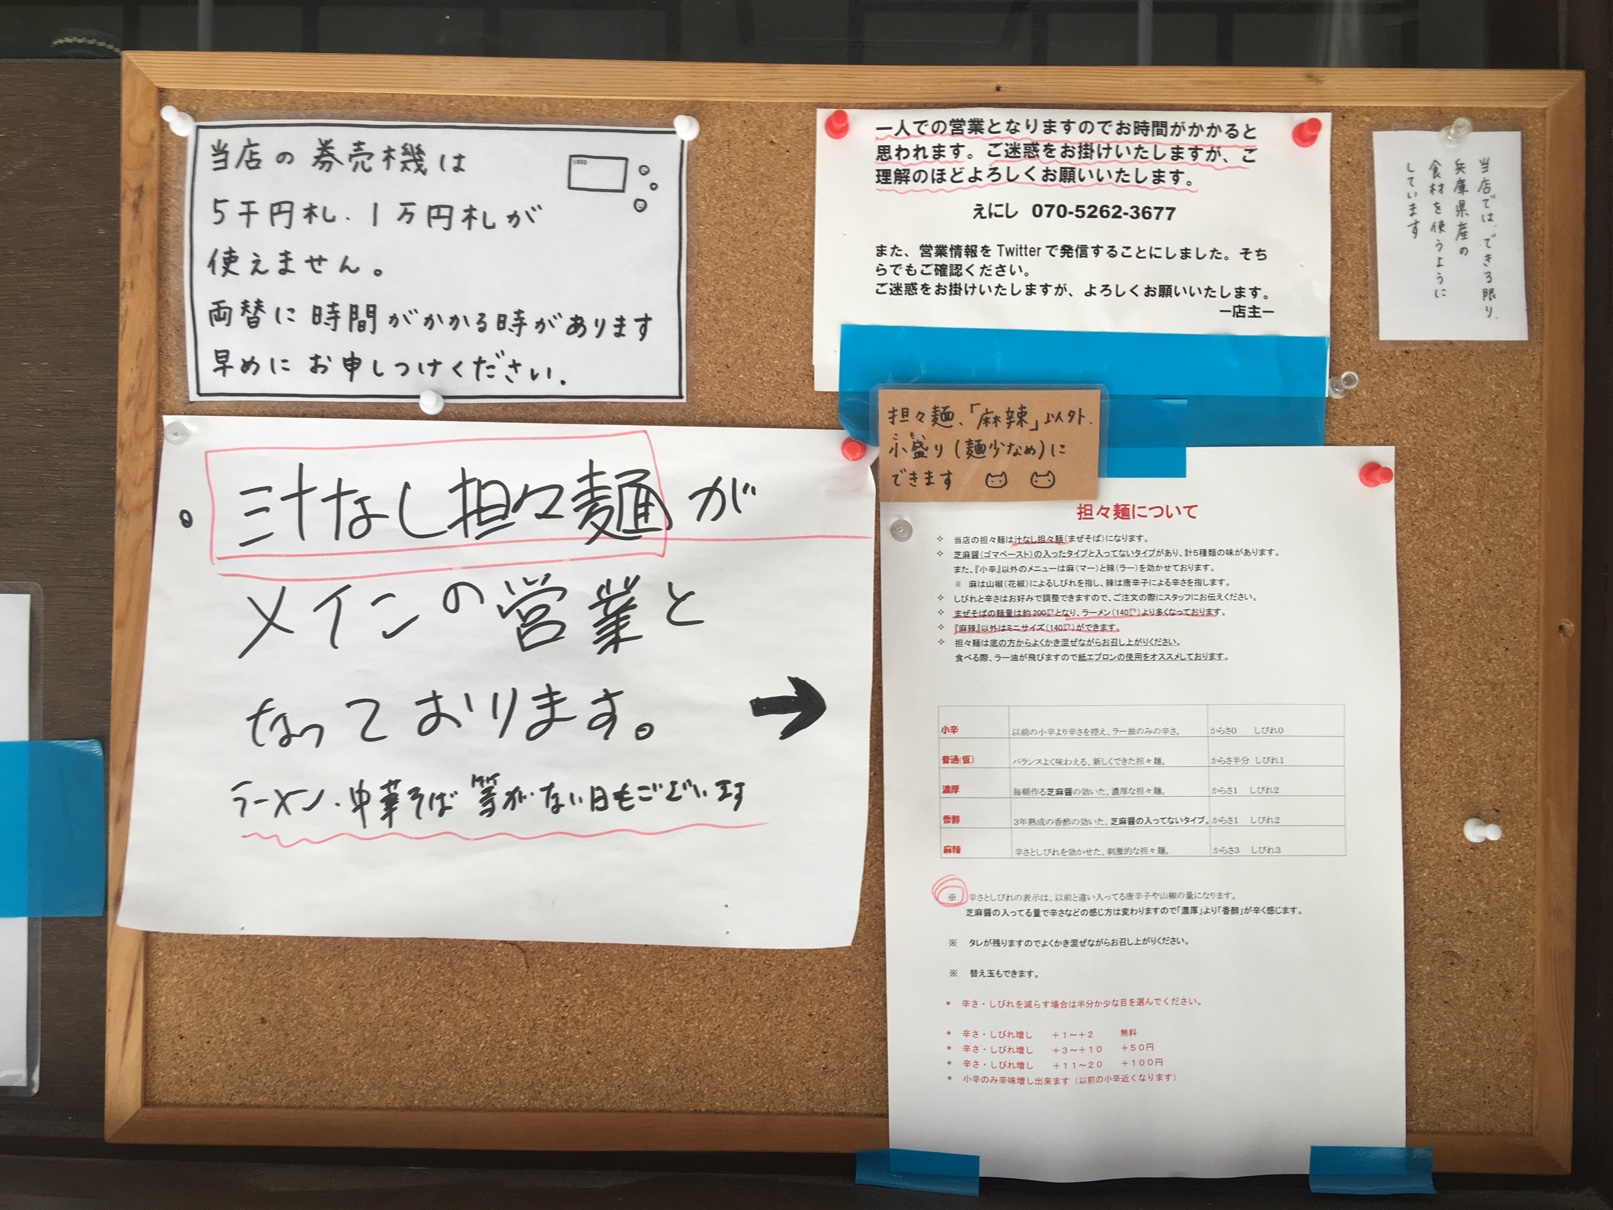 当店の券売機は
1000
5千円札、1万円札が
使えません。
両替に時間がかかる時があります
早めにお申しつけください.
一人での営業となりますのでお時間がかかると
思われます。ご迷惑をお掛けいたしますが、ご
理解のほどよろしくお願いいたします。
えにし 070-5262-3677
また、営業情報をTwitterで発信することにしました。そち
らでもご確認ください。
ご迷惑をお掛けいたしますが、よろしくお願いいたします。
ー店主ー
当店では、できる限り、
兵庫県産の
食材を使うように
しています
。汁なし担々麺が
メインの営業と
なっております。
ラーメン、中華そば等がない日もございます
担々麺、「麻辣」以外、
小盛り(麺少なめ)に
できます
担々麺について
✧ 当店の担々麺は汁なし担々麺(まぜそば)になります。
✧ 芝麻醤(ゴマペースト)の入ったタイプと入ってないタイプがあり、計5種類の味があります。
また、『小辛』以外のメニューは麻(マー)と辣(ラー)を効かせております。
※ 麻は山椒(花椒)によるしびれを指し、辣は唐辛子による辛さを指します。
✧ しびれと辛さはお好みで調整できますので、ご注文の際にスタッフにお伝えください。
✧ まぜそばの麺量は約200㌘となり、ラーメン(140㌘)より多くなっております。
✧ 『麻辣』以外はミニサイズ(140㌘)ができます。
✧ 担々麺は底の方からよくかき混ぜながらお召し上がりください。
食べる際、ラー油が飛びますので紙エプロンの使用をオススメしております。
小辛 以前の小辛より辛さを控え、ラー油のみの辛さ。 からさ0 しびれ0
普通(仮) バランスよく味わえる、新しくできた担々麺。 からさ半分 しびれ1
濃厚 毎朝作る芝麻醤の効いた、濃厚な担々麺。 からさ1 しびれ2
香酢 3年熟成の香酢の効いた、芝麻醤の入ってないタイプ。 からさ1 しびれ2
麻辣 辛さとしびれを効かせた、刺激的な担々麺。 からさ3 しびれ3
※ 辛さとしびれの表示は、以前と違い入ってる唐辛子や山椒の量になります。
芝麻醤の入ってる量で辛さなどの感じ方は変わりますので「濃厚」より「香酢」が辛く感じます。
※ タレが残りますのでよくかき混ぜながらお召し上がりください。
※ 替え玉もできます。
* 辛さ・しびれを減らす場合は半分か少な目を選んでください。
* 辛さ・しびれ増し +1～+2 無料
* 辛さ・しびれ増し +3～+10 +50円
* 辛さ・しびれ増し +11～20 +100円
* 小辛のみ辛味増し出来ます(以前の小辛近くなります)